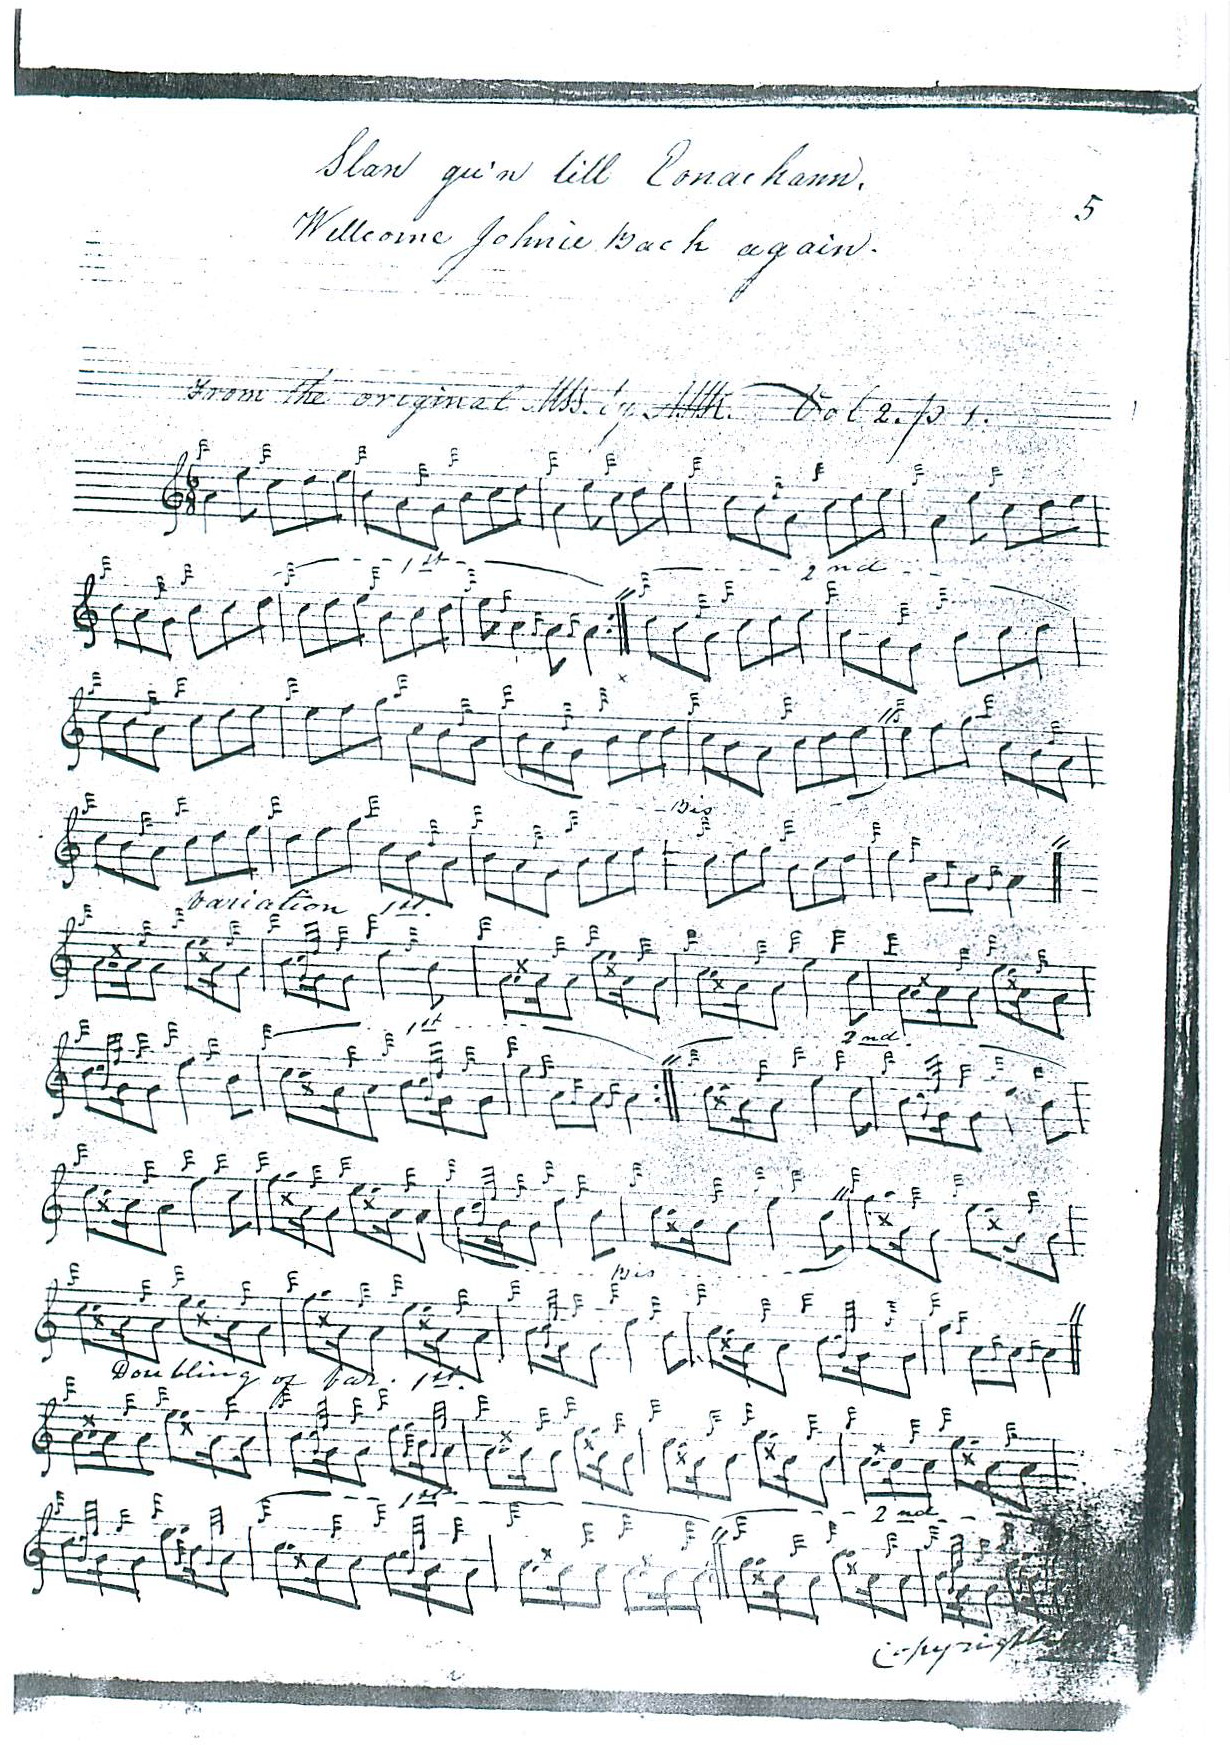 Slan gu'n till Eonachann.
5
Wellcome Johnie Back again.
From the original MSS. by Vol 2. p 1.
1st
2nd
Bis
Variation 1st.
1st
2nd.
Bis
Doubling of Var. 1st.
1st
2nd
Copyright